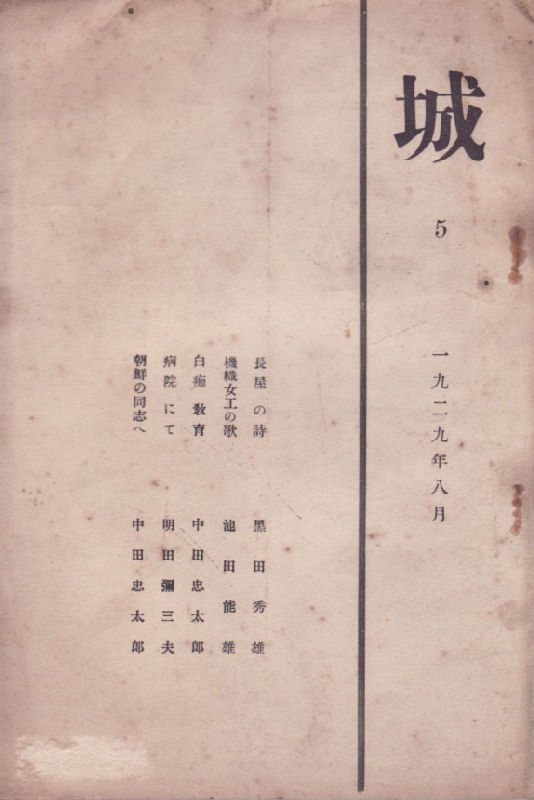 城
5
一九二九年八月
長屋の詩 黒田秀雄
機織女工の歌 池田能雄
白痴教育 中田忠太郎
病院にて 明田彌三夫
朝鮮の同志へ 中田忠太郎